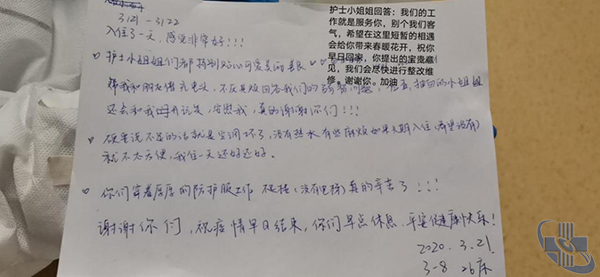 3/21 - 3/22
入住了一天，感觉非常好!!!
护士小姐姐们都特别好心可爱美的
我们的 问题
还去和我 真的谢谢你们!!!
硬要说不足的话就是空调坏了，没有热水有些麻烦如果长期入住(希望没有)
就不太方便，我住一天还好还好。
你们穿着厚厚的防护服工作 (没有电梯)真的辛苦了!!!
谢谢你们，祝疫情早日结束，你们早点休息，平安健康快乐!
2020. 3. 21
3-8 26床
护士小姐姐回答：我们的工
作就是服务你，别个我们客
气，希望在这里短暂的相遇
会给你带来春暖花开，祝你
早日回家，你提出的宝贵意
见，我们会尽快进行整改维
修。谢谢你。加油